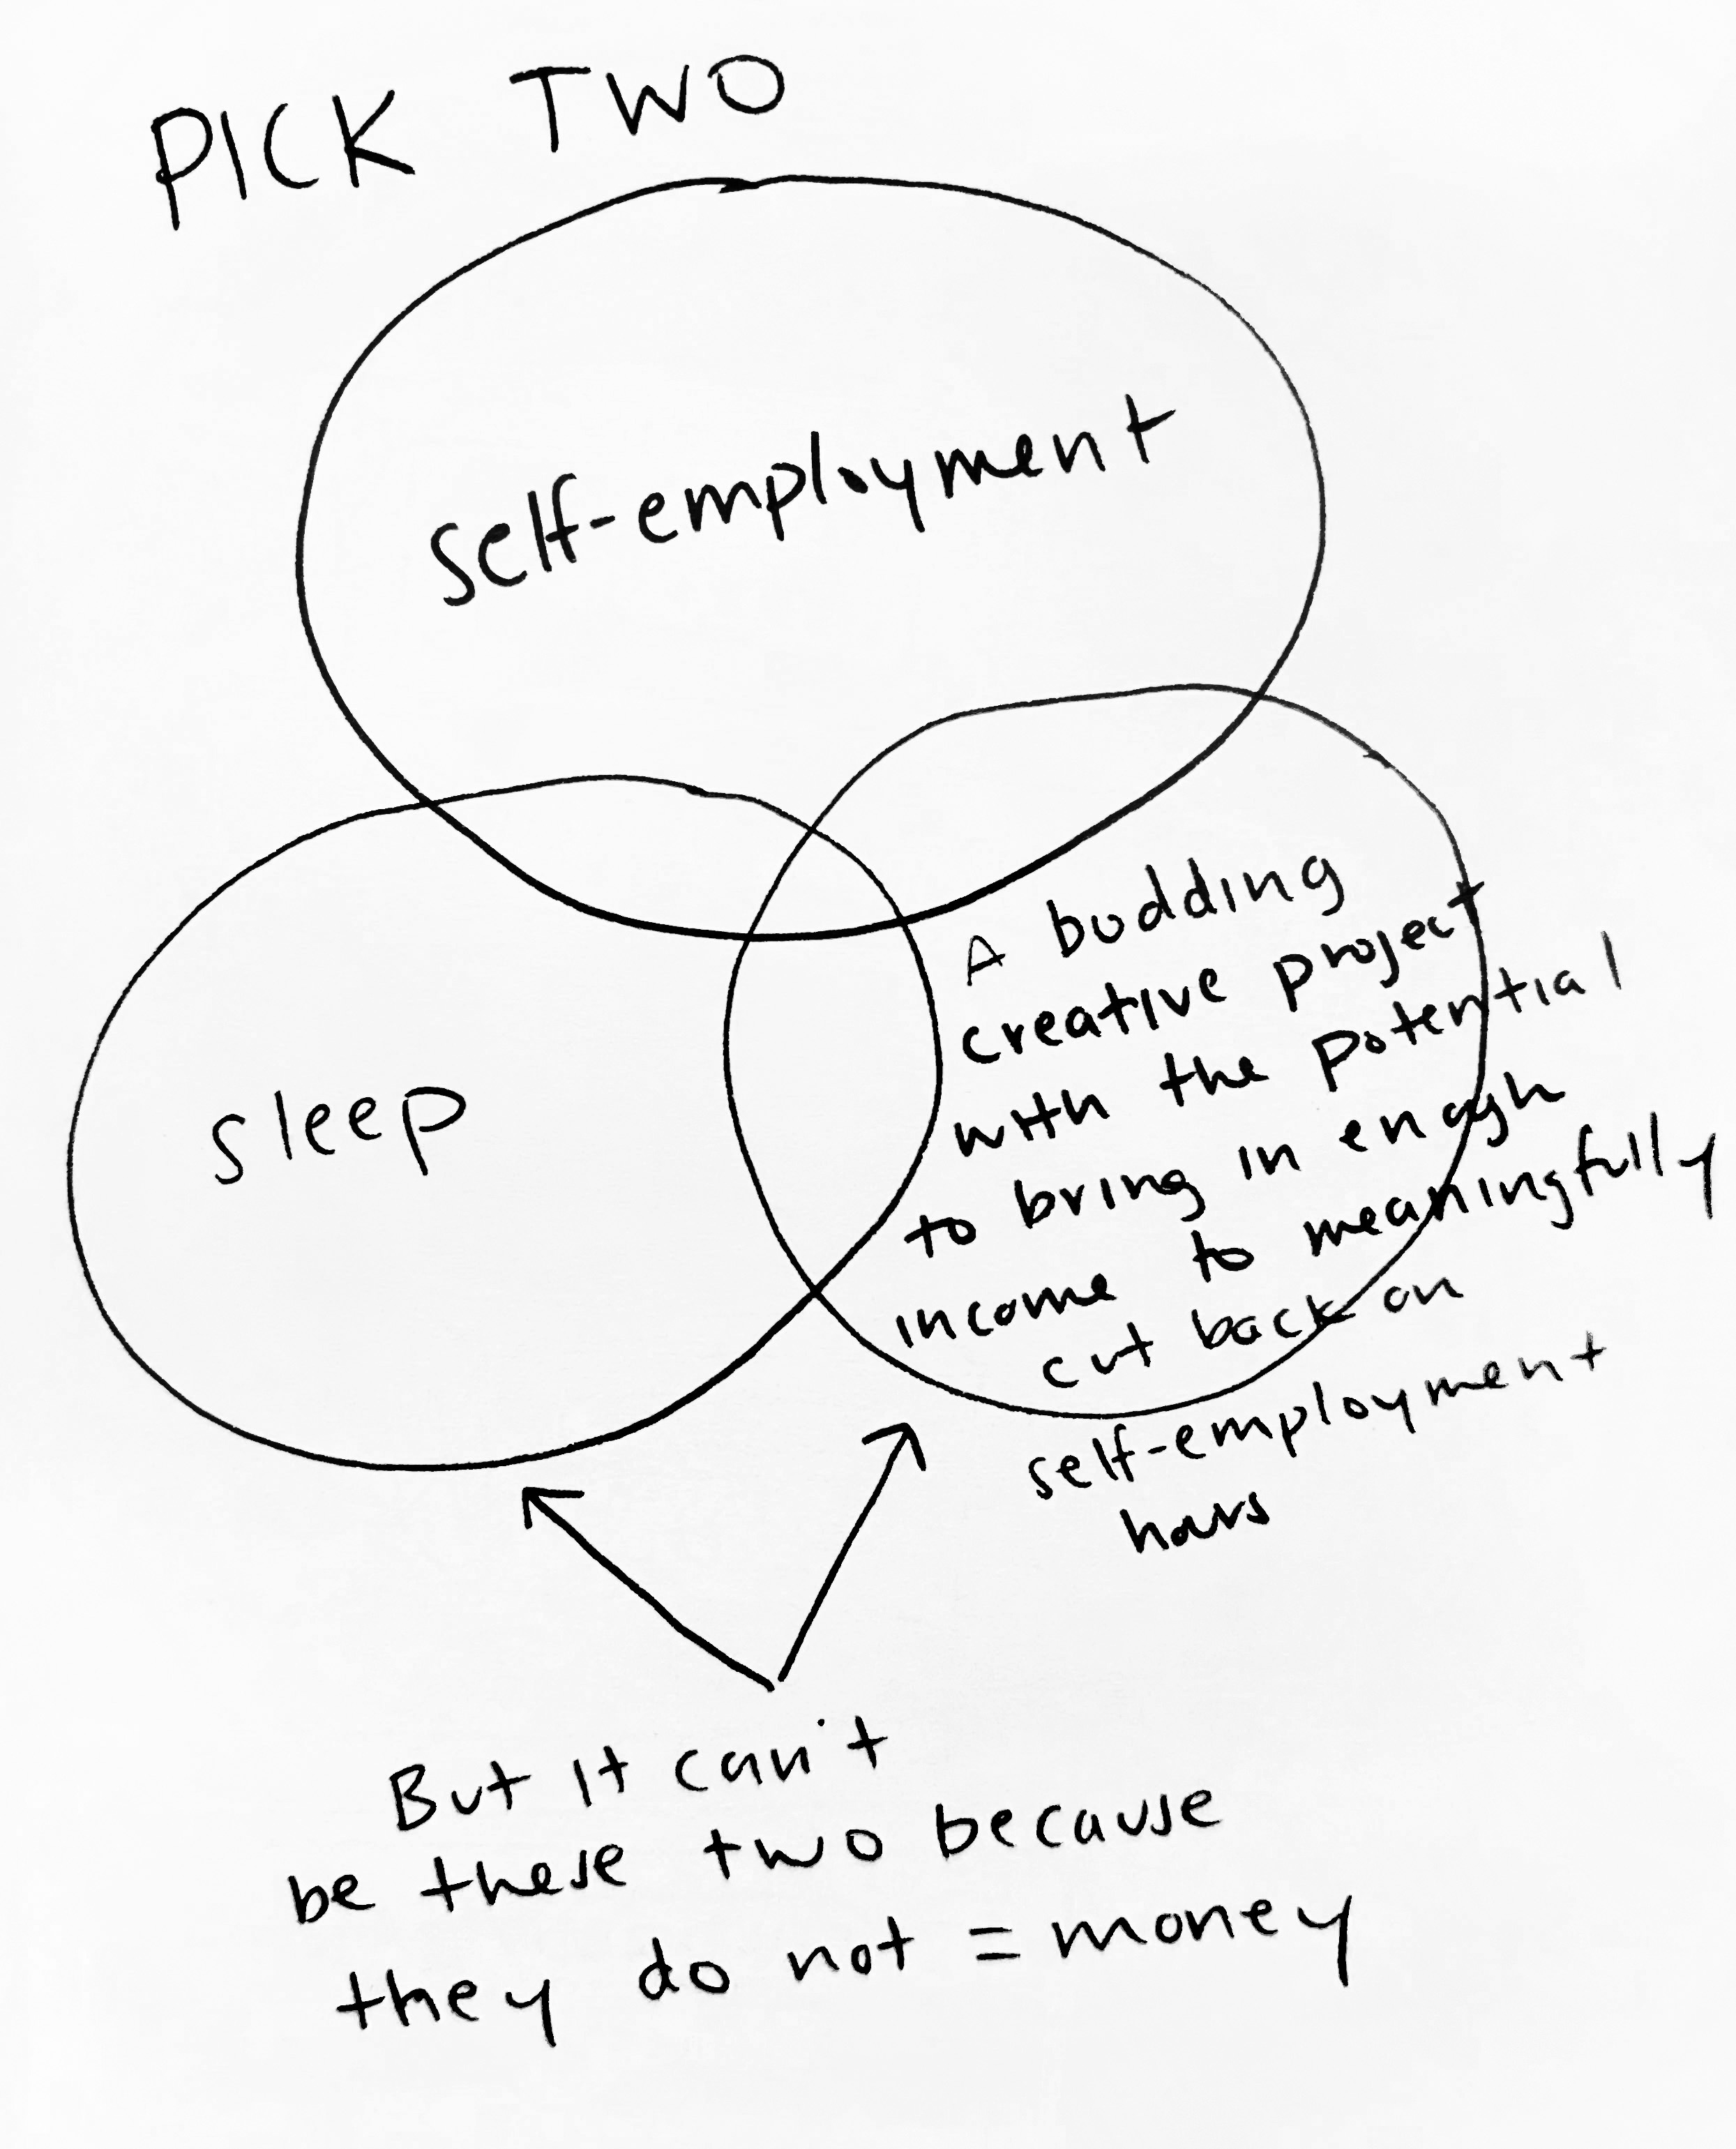 PICK TWO
self-employment
sleep
A budding
creative project
with the potential
to bring in enough
income to meaningfully
cut back on
self-employment
hours
But it can't
be these two because
they do not = money